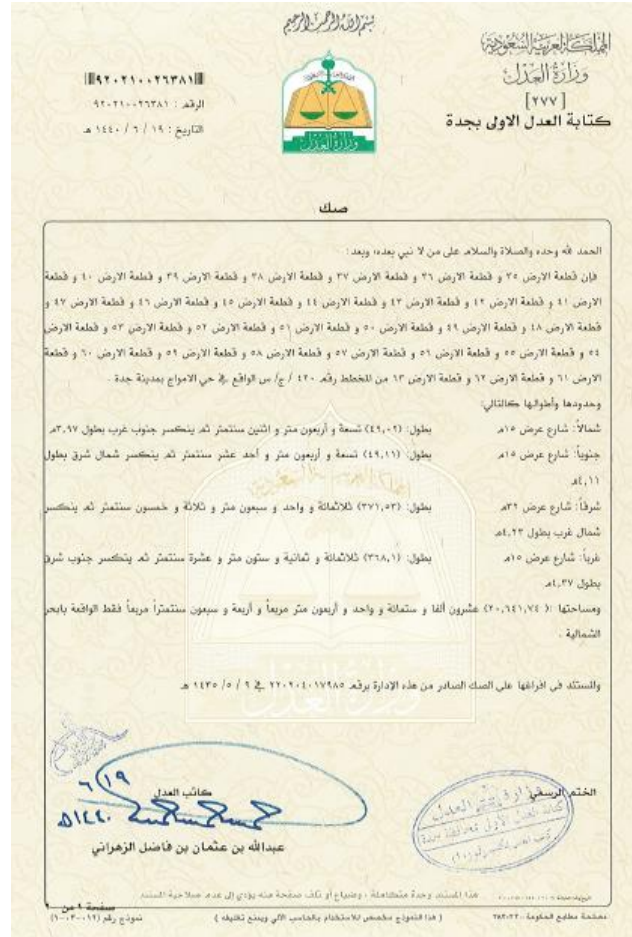 بسم الله الرحمن الرحيم
المملكة العربية السعودية
وزارة العدل
[٢٧٧]
كتابة العدل الاولى بجدة
٩٢٠٢١٠٠٢٦٣٨١
الرقم : ٩٢٠٢١٠٠٢٦٣٨١
التاريخ : ١٩ / ٦ / ١٤٤٠ هـ
وزارة العدل
صك
الحمد لله وحده والصلاة والسلام على من لا نبي بعده، وبعد :
فإن قطعة الارض ٣٥ و قطعة الارض ٣٦ و قطعة الارض ٣٧ و قطعة الارض ٣٨ و قطعة الارض ٣٩ و قطعة الارض ٤٠ و قطعة
الارض ٤١ و قطعة الارض ٤٢ و قطعة الارض ٤٣ و قطعة الارض ٤٤ و قطعة الارض ٤٥ و قطعة الارض ٤٦ و قطعة الارض ٤٧ و
قطعة الارض ٤٨ و قطعة الارض ٤٩ و قطعة الارض ٥٠ و قطعة الارض ٥١ و قطعة الارض ٥٢ و قطعة الارض ٥٣ و قطعة الارض
٥٤ و قطعة الارض ٥٥ و قطعة الارض ٥٦ و قطعة الارض ٥٧ و قطعة الارض ٥٨ و قطعة الارض ٥٩ و قطعة الارض ٦٠ و قطعة
الارض ٦١ و قطعة الارض ٦٢ و قطعة الارض ٦٣ من المخطط رقم ٤٢٠ / ج/ س الواقع في حي الامواج بمدينة جدة .
وحدودها وأطوالها كالتالي:
شمالاً: شارع عرض ١٥م بطول: (٤٩,٠٢) تسعة و أربعون متر و اثنين سنتمتر ثم ينكسر جنوب غرب بطول ٣,٩٧م
جنوباً: شارع عرض ١٥م بطول: (٤٩,١١) تسعة و أربعون متر و أحد عشر سنتمتر ثم ينكسر شمال شرق بطول
٤,١١م
شرقاً: شارع عرض ٣٢م بطول: (٣٧١,٥٣) ثلاثمائة و واحد و سبعون متر و ثلاثة و خمسون سنتمتر ثم ينكسر
شمال غرب بطول ٤,٢٣م
غرباً: شارع عرض ١٥م بطول: (٣٦٨,١) ثلاثمائة و ثمانية و ستون متر و عشرة سنتمتر ثم ينكسر جنوب شرق
بطول ٤,٣٧م
ومساحتها :( ٢٠,٦٤١,٧٤) عشرون ألفا و ستمائة و واحد و أربعون متر مربعاً و أربعة و سبعون سنتمتراً مربعاً فقط الواقعة بابحر
الشمالية .
والمستند في افراغها على الصك الصادر من هذه الإدارة برقم ٢٢٠٢٠٤٠١٧٩٨٥ في ٩ / ٥ / ١٤٣٥ هـ
كاتب العدل
٦/١٩
١٤٤٠هـ
عبدالله بن عثمان بن فاضل الزهراني
الختم الرسمي
وزارة العدل
هذا المستند وحدة متكاملة ، وضياع أو تلف صفحة منه يؤدي إلى عدم صلاحية المستند
صفحة ١ من
نموذج رقم (١٢-٠٣-٠١)
( هذا النموذج مخصص للاستخدام بالحاسب الآلي ويمنع تغليفه )
مصلحة مطابع الحكومة